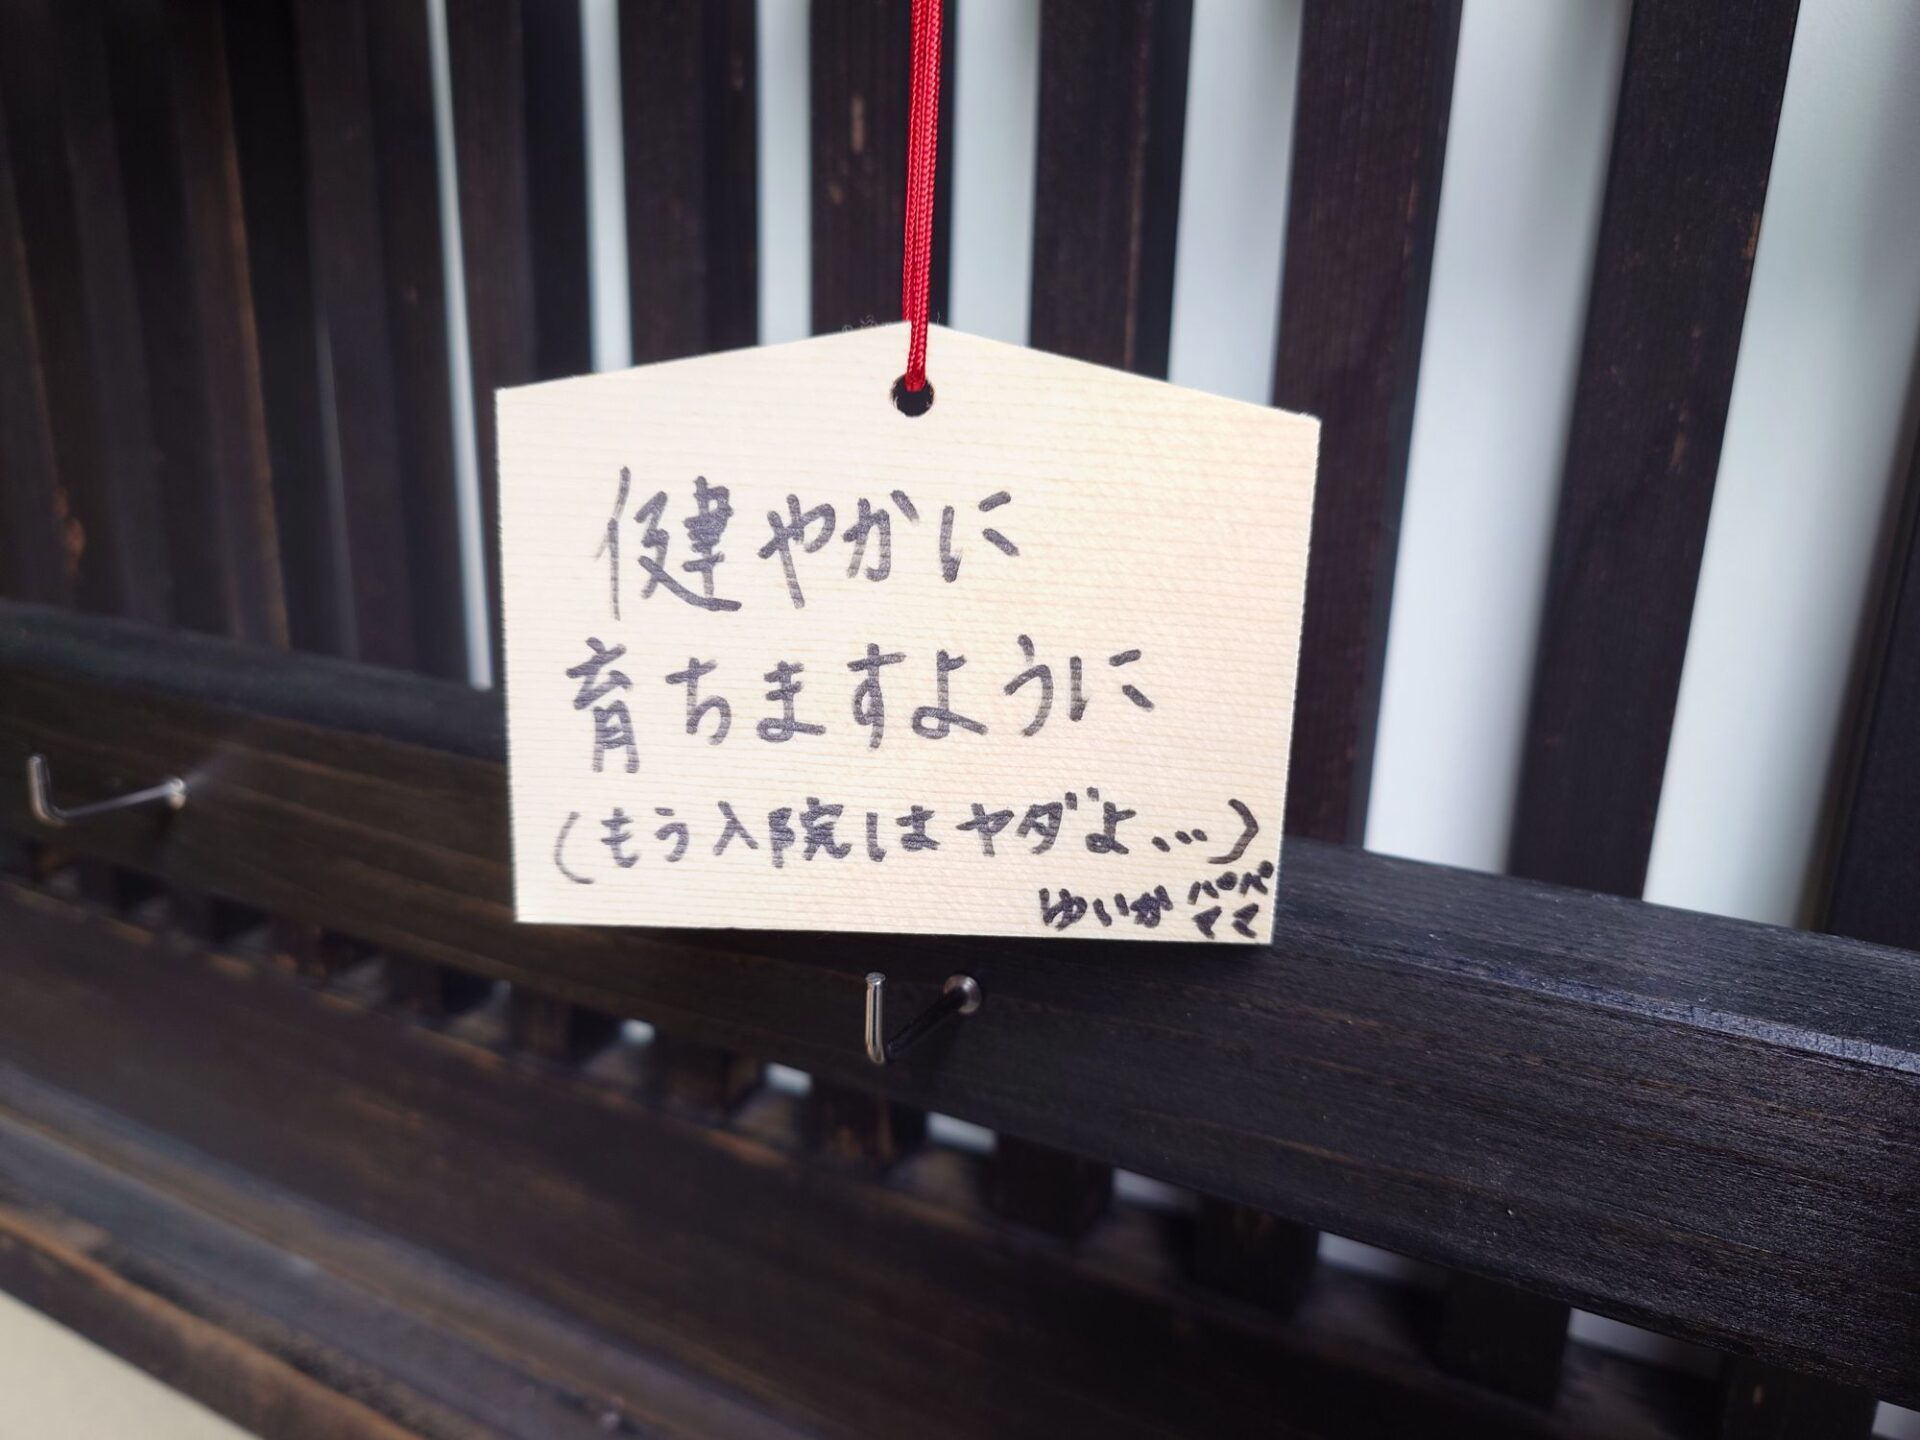 健やかに
育ちますように
(もう入院はヤダよ…)
ゆいが パパ
ママ